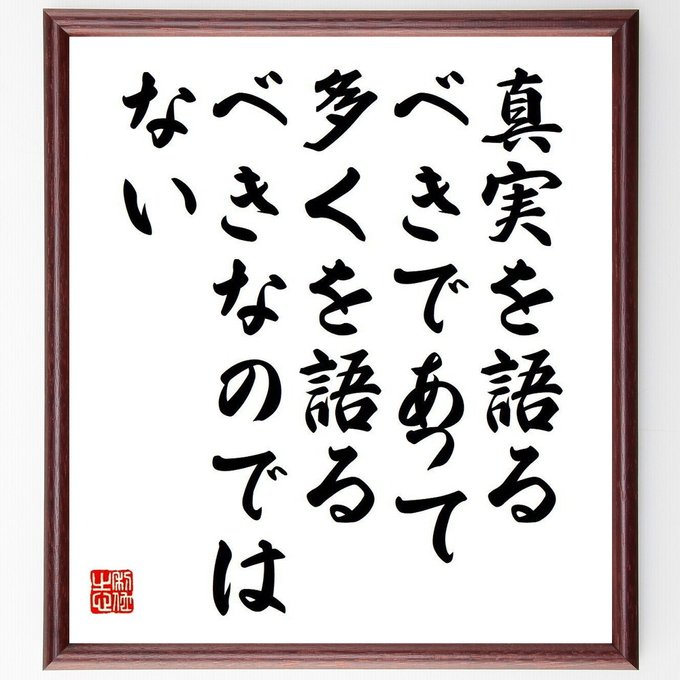 真実を語る
べきであって
多くを語る
べきなのでは
ない